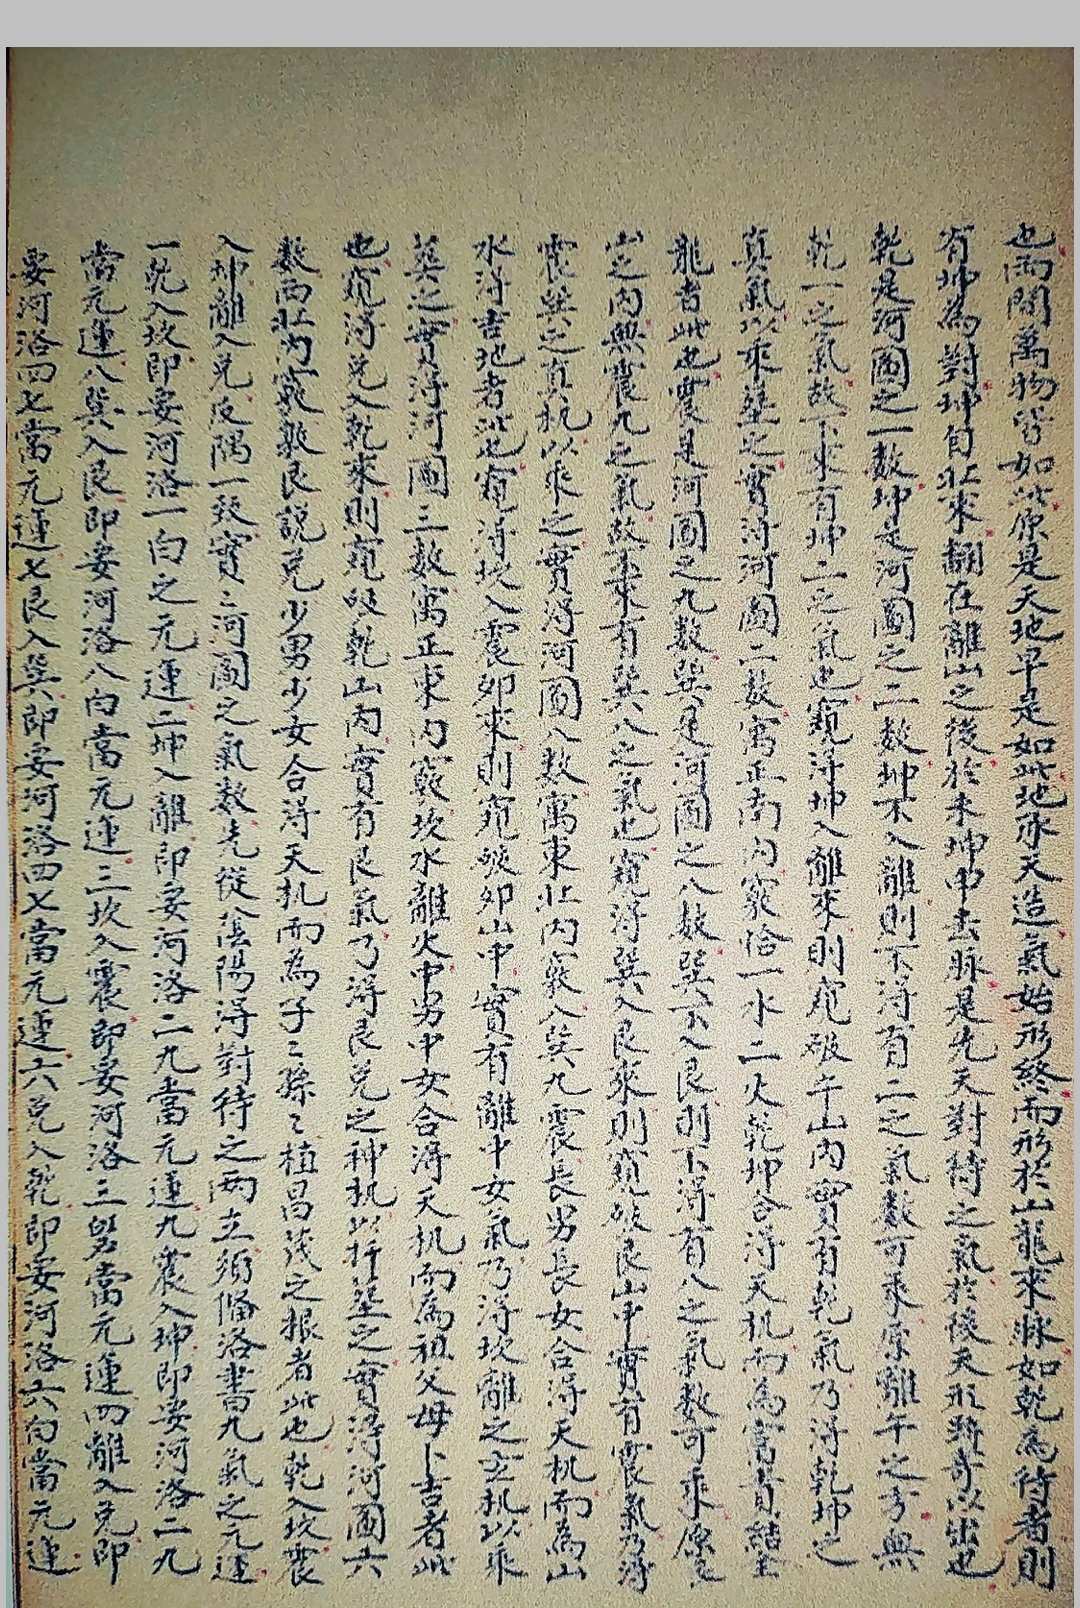 也而闔萬物皆如此原是天地早是如此地承天造氣始形終而形於山龍來脉如乾為待者則
有坤為對坤自北來翻在離山之後於未坤申去脉是先天對待之氣於後天形跡奇以出也
乾是河圖之一數坤是河圖之二數坤不入離則不淂有二之氣數可乘原離午之方無
乾一之氣故下來有坤二之氣也窺淂坤入離來則窺破午山內實有乾氣乃淂乾坤之
真氣以乘塟之實淂河圖二數寓正南內竅恰一水二火乾坤合淂天机而為富貴結空
龍者此也震是河圖之九數巽是河圖之八數巽不入艮則不淂有八之氣數可乘原艮
山之內無震九之氣故下來有巽八之氣也窺淂巽入艮來則窺破艮山中實有震氣乃淂
震巽之真机以乘之實淂河圖八數寓東北內竅八巽九震長男長女合淂天机而為山
水淂吉地者此也窺淂坎入震卯來則窺破卯山中實有離中女氣乃淂坎離之玄机以乘
塟之實淂河圖三數寓正東內竅坎水離火中男中女合淂天机而為祖父母卜吉者此
也窺淂兌入乾來則窺破乾山內實有艮氣乃淂艮兌之神机以扦塟之實淂河圖六
數西北內竅數艮說兌少男少女合淂天机而為子〻孫〻植昌茂之根者此也乾入坎震
入坤離入兌反隅一致實〻河圖之氣數先從陰陽淂對待之兩立須俻洛書九氣之元運
一乾入坎即妥河洛一白之元運二坤入離即妥河洛二九當元運九震入坤即妥河洛二九
當元運八巽入艮即妥河洛八白當元運三坎入震即妥河洛三碧當元運四離入兌即
妥河洛四七當元運七艮入巽即妥河洛四七當元運六兌入乾即妥河洛六白當元運